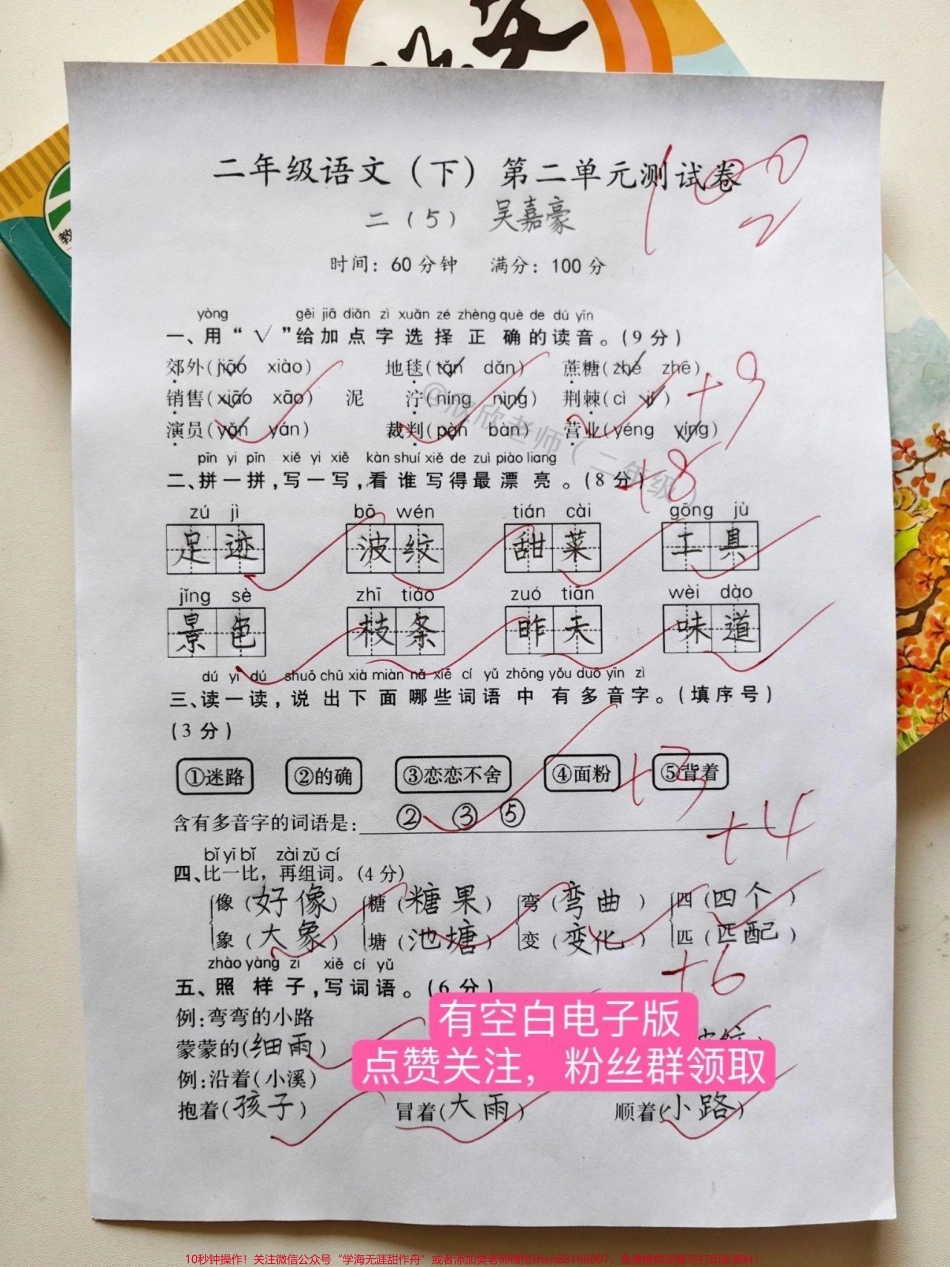 二年级语文(下)第二单元测试卷
100
2
二(5) 吴嘉豪
时间:60分钟 满分:100分
yòng gěi jiā diǎn zì xuǎn zé zhèng què de dú yīn
一、用“√”给加点字选择正确的读音。(9分)
郊外(jiāo xiào) 地毯(tǎn dǎn) 蔗糖(zhè zhē)
销售(xiāo xāo) 泥泞(níng nìng) 荆棘(cì jí)
+9
演员(yǎn yán) 裁判(pàn bàn) 营业(yéng yíng)
@欣欣老师(二年级)
pīn yi pīn xiě yi xiě kàn shuí xiě de zuì piào liang
二、拼一拼,写一写,看谁写得最漂亮。(8分)
+8
zú jì bō wén tián cài gōng jù
足迹 波纹 甜菜 工具
jǐng sè zhī tiáo zuó tiān wèi dào
景色 枝条 昨天 味道
dú yi dú shuō chū xià miàn nǎ xiē cí yǔ zhōng yǒu duō yīn zì
三、读一读,说出下面哪些词语中有多音字。(填序号)
(3分)
①迷路 ②的确 ③恋恋不舍 ④面粉 ⑤背着
+3
含有多音字的词语是:② ③ ⑤
+4
bǐ yi bǐ zài zǔ cí
四、比一比,再组词。(4分)
像(好像) 糖(糖果) 弯(弯曲) 四(四个)
象(大象) 塘(池塘) 变(变化) 匹(匹配)
zhào yàng zi xiě cí yǔ
五、照样子,写词语。(6分)
+6
例:弯弯的小路
蒙蒙的(细雨)
例:沿着(小溪)
抱着(孩子) 冒着(大雨) 顺着(小路)
有空白电子版
点赞关注,粉丝群领取
10秒钟操作!关注微信公众号“学海无涯甜作舟”或者添加樊老师微信shen88168007,免费提供完整可打印版资料!